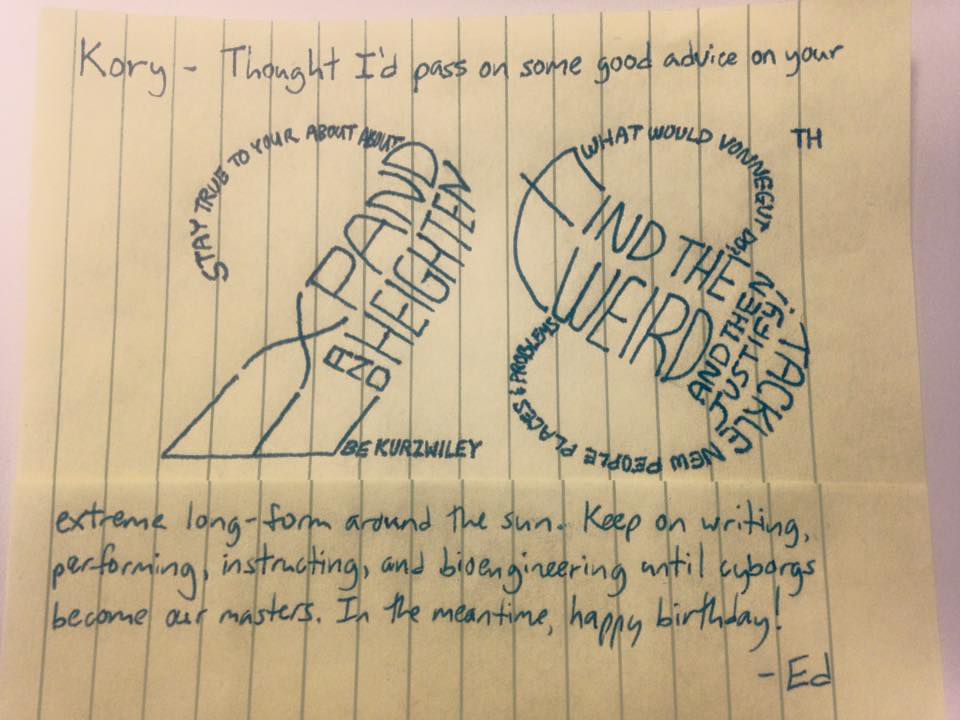 Kory - Thought I'd pass on some good advice on your
STAY TRUE TO YOUR ABOUT ABOUT
EXPAND
AND
HEIGHTEN
BE KURZWILEY
WHAT WOULD VONNEGUT DO?
TH
FIND THE
WEIRD
AND THEN
JUSTIFY!
TACKLE
NEW PEOPLE PLACES & PROBLEMS
extreme long-form around the sun. Keep on writing,
performing, instructing, and bioengineering until cyborgs
become our masters. In the meantime, happy birthday!
- Ed